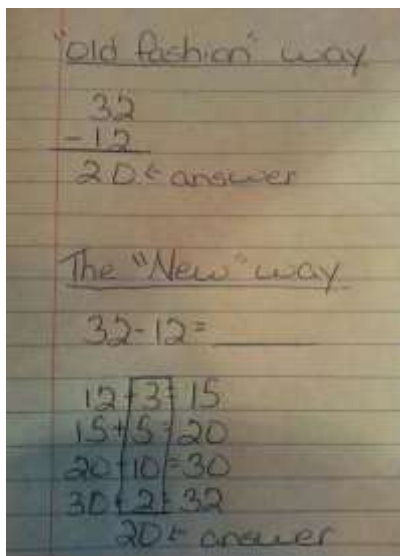 "old fashion" way
32
-12
20 ← answer
The "New" way
32-12=____
12+3=15
15+5=20
20+10=30
30+2=32
20 ← answer